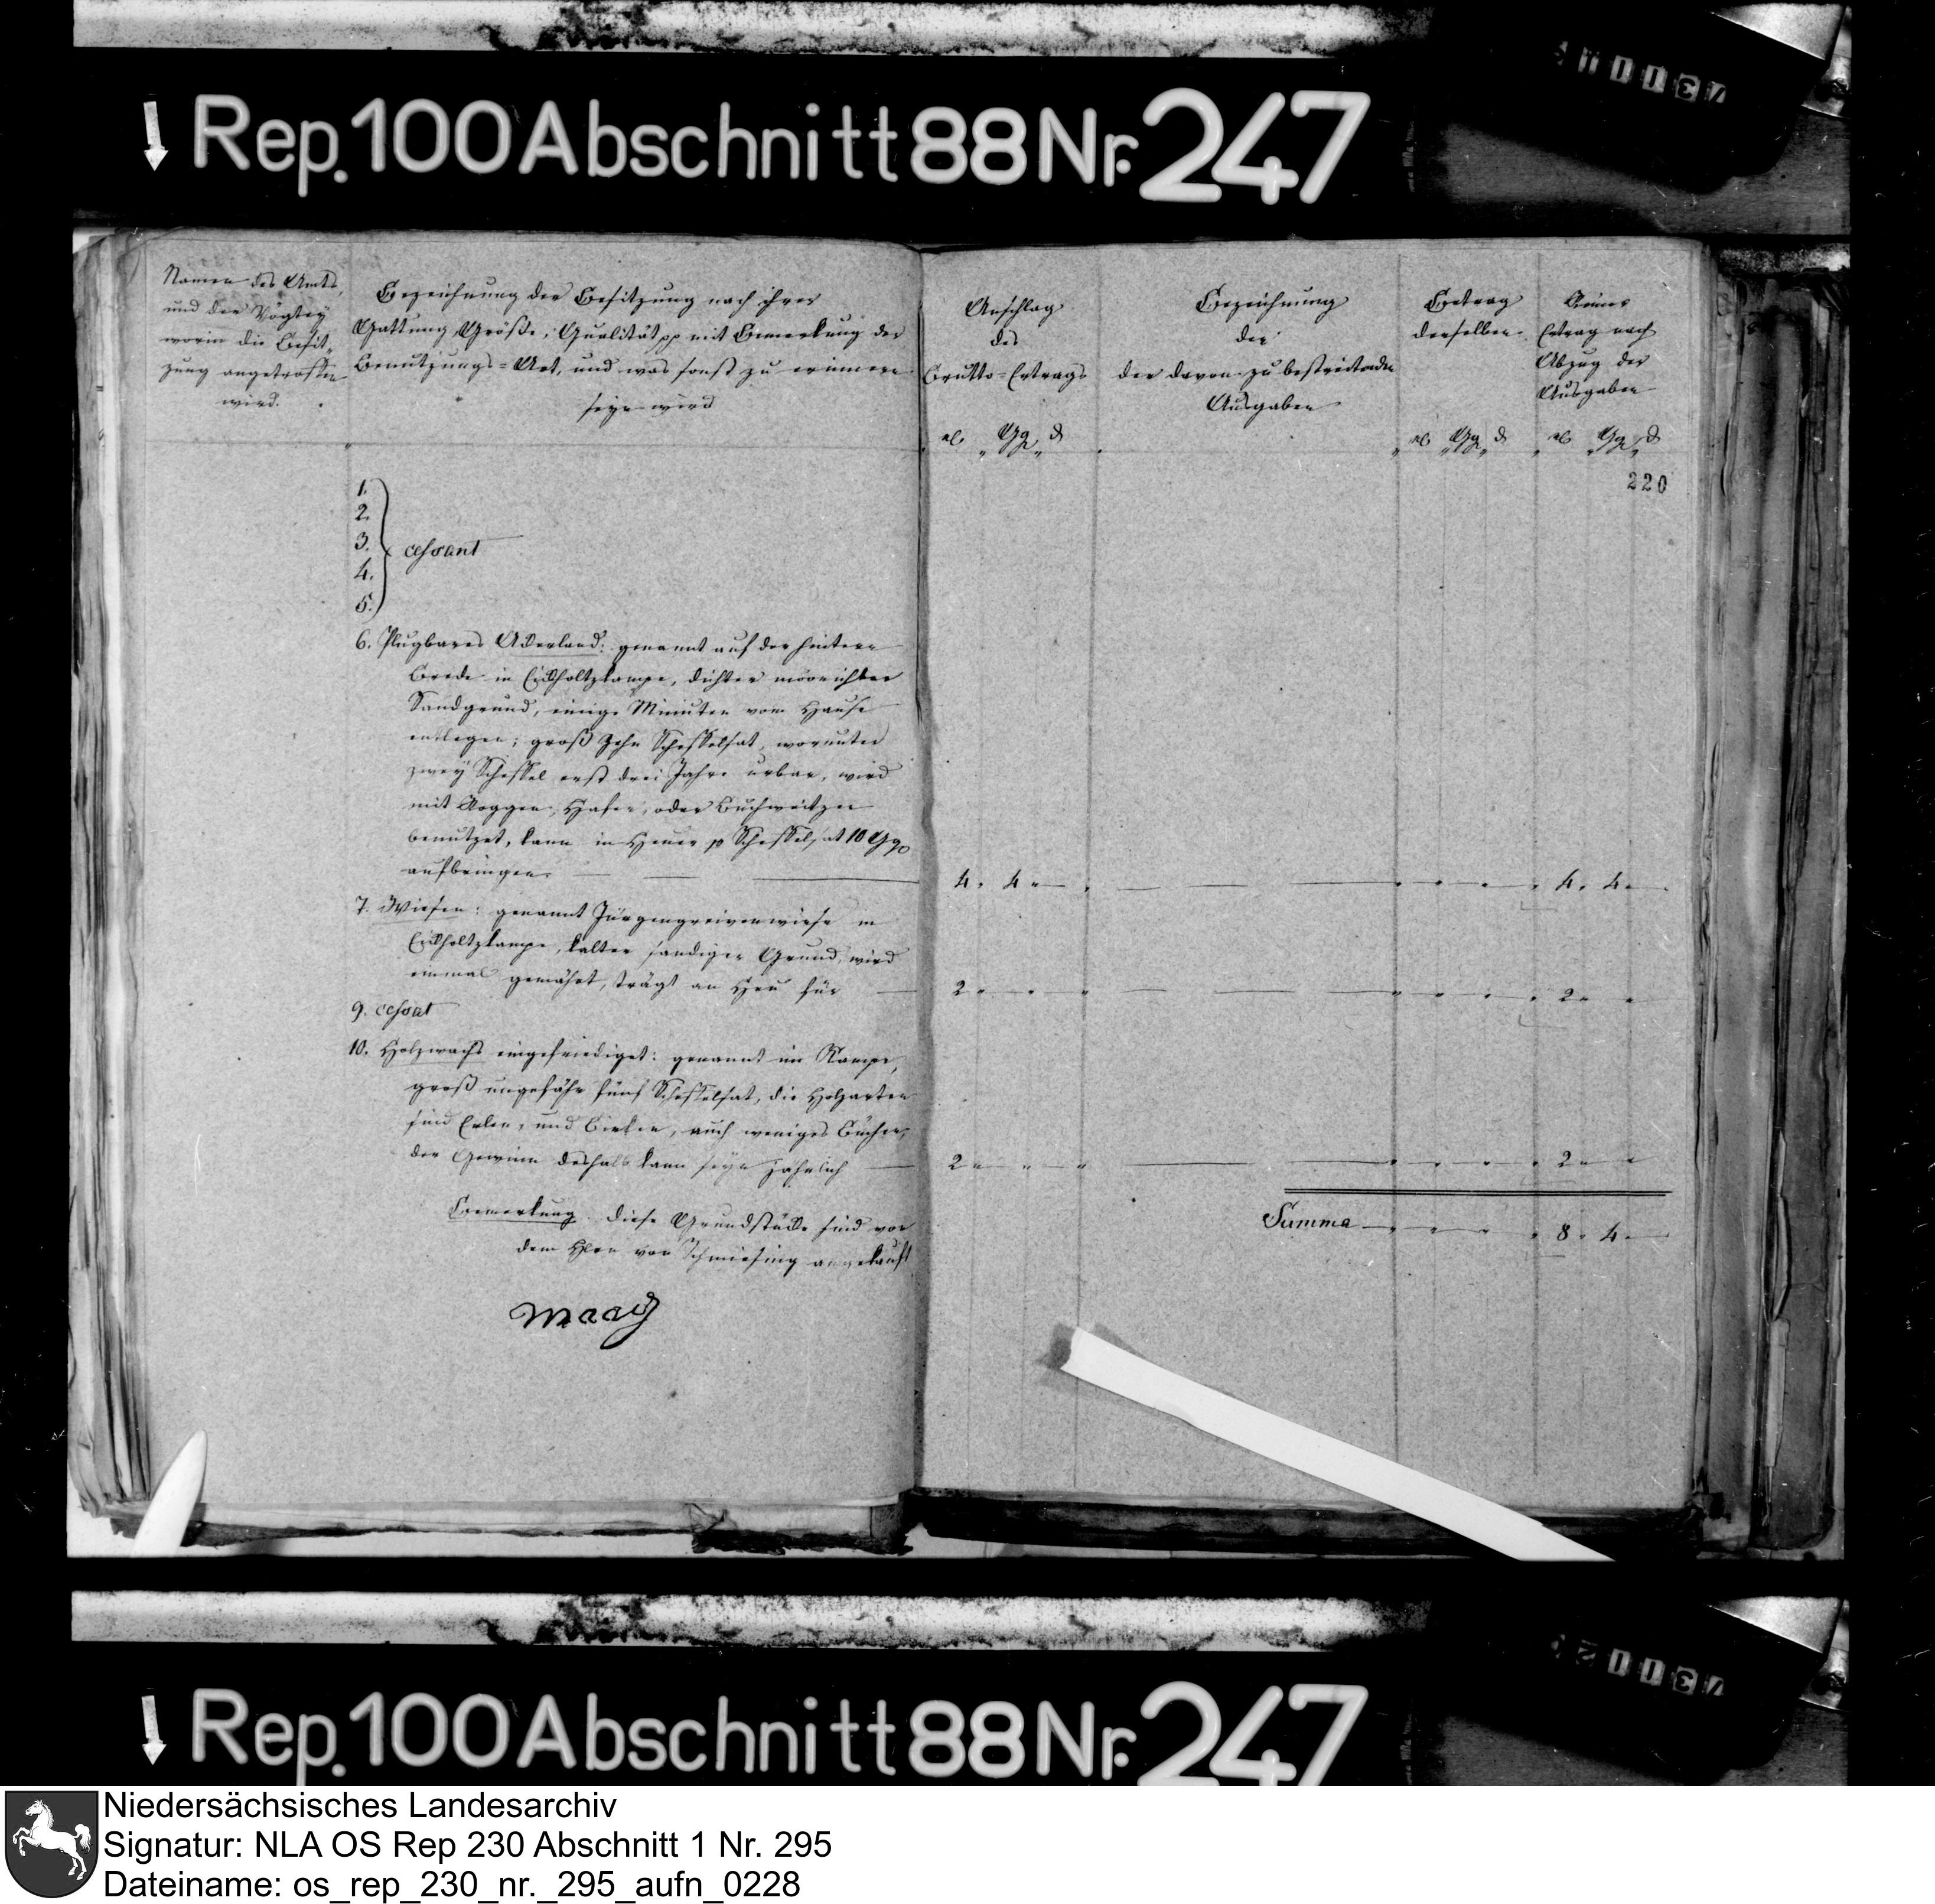 Rep. 100 Abschnitt 88 Nr. 247
Namen des Amts,
und der Vogtey
worin die Besit-
zung angetroffen
wird.
Bezeichnung der Besitzung nach ihrer
Gattung, Größe, Qualität pp mit Bemerkung der
Benutzungs=Art, und was sonst zu erinnern
seyn wird
Anschlag
des
Brutto=Ertrags
Bezeichnung
der
der davon zu bestreitenden
Ausgaben
Betrag
derselben
Reiner
Ertrag nach
Abzug der
Ausgaben
Gg ₰
Gg ₰
Gg ₰
220
1.
2.
3.
4.
5.
cessant
6. Plugbares Ackerland: genannt auf der hintern
Brede in Eickholtzkampe, dichter moorichter
Sandgrund, einige Minuten vom Hause
entlegen; groß Zehn Scheffelsat, worunter
zwey Scheffel erst drei Jahre urbar, wird
mit Roggen, Hafer, oder Buchweitzen
benutzet, kann in Heuer p Scheffelsat 10 Gg
aufbringen
4. 4
4. 4
7. Wiesen: genannt Jürgengreivenwiese in
Eickholtzkampe, kalter sandiger Grund, wird
einmal gemähet, trägt an Heu für
2
2
9. cessat
10. Holzwachs eingefriediget: genannt im Kampe,
groß ungefähr fünf Scheffelsat, die Holzarten
sind Erlen, und Birken, auch weniges Büchen,
der Gewinn deshalb kann seyn jährlich
2
2
Summa 8. 4
Bemerkung. Diese Grundstücke sind von
dem Hren von Schmiesing angekauft
Rep. 100 Abschnitt 88 Nr. 247
Niedersächsisches Landesarchiv
Signatur: NLA OS Rep 230 Abschnitt 1 Nr. 295
Dateiname: os_rep_230_nr._295_aufn_0228